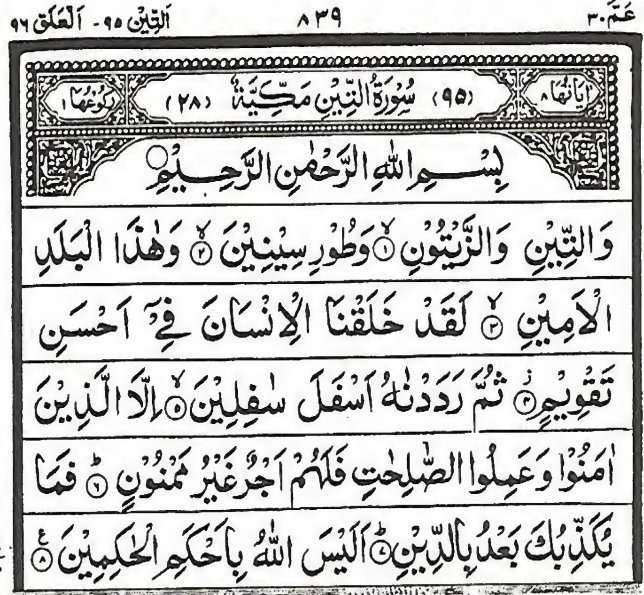 عَمَّ ٣٠ ٨٣٩ اَلتِّيْن ٩٥ - اَلْعَلَق ٩٦
اٰيَاتُهَا ٨ (٩٥) سُوْرَةُ التِّيْنِ مَكِّيَّةٌ (٢٨) رُكُوْعُهَا ١
بِسْمِ اللهِ الرَّحْمٰنِ الرَّحِيْمِ
وَالتِّيْنِ وَالزَّيْتُوْنِ ۙ﴿١﴾ وَطُوْرِ سِيْنِيْنَ ۙ﴿٢﴾ وَهٰذَا الْبَلَدِ
الْاَمِيْنِ ۙ﴿٣﴾ لَقَدْ خَلَقْنَا الْاِنْسَانَ فِيْٓ اَحْسَنِ
تَقْوِيْمٍ ؗ﴿٤﴾ ثُمَّ رَدَدْنٰهُ اَسْفَلَ سٰفِلِيْنَ ۙ﴿٥﴾ اِلَّا الَّذِيْنَ
اٰمَنُوْا وَعَمِلُوا الصّٰلِحٰتِ فَلَهُمْ اَجْرٌ غَيْرُ مَمْنُوْنٍ ؕ﴿٦﴾ فَمَا
يُكَذِّبُكَ بَعْدُ بِالدِّيْنِ ؕ﴿٧﴾ اَلَيْسَ اللهُ بِاَحْكَمِ الْحٰكِمِيْنَ ﴿٨﴾ ع